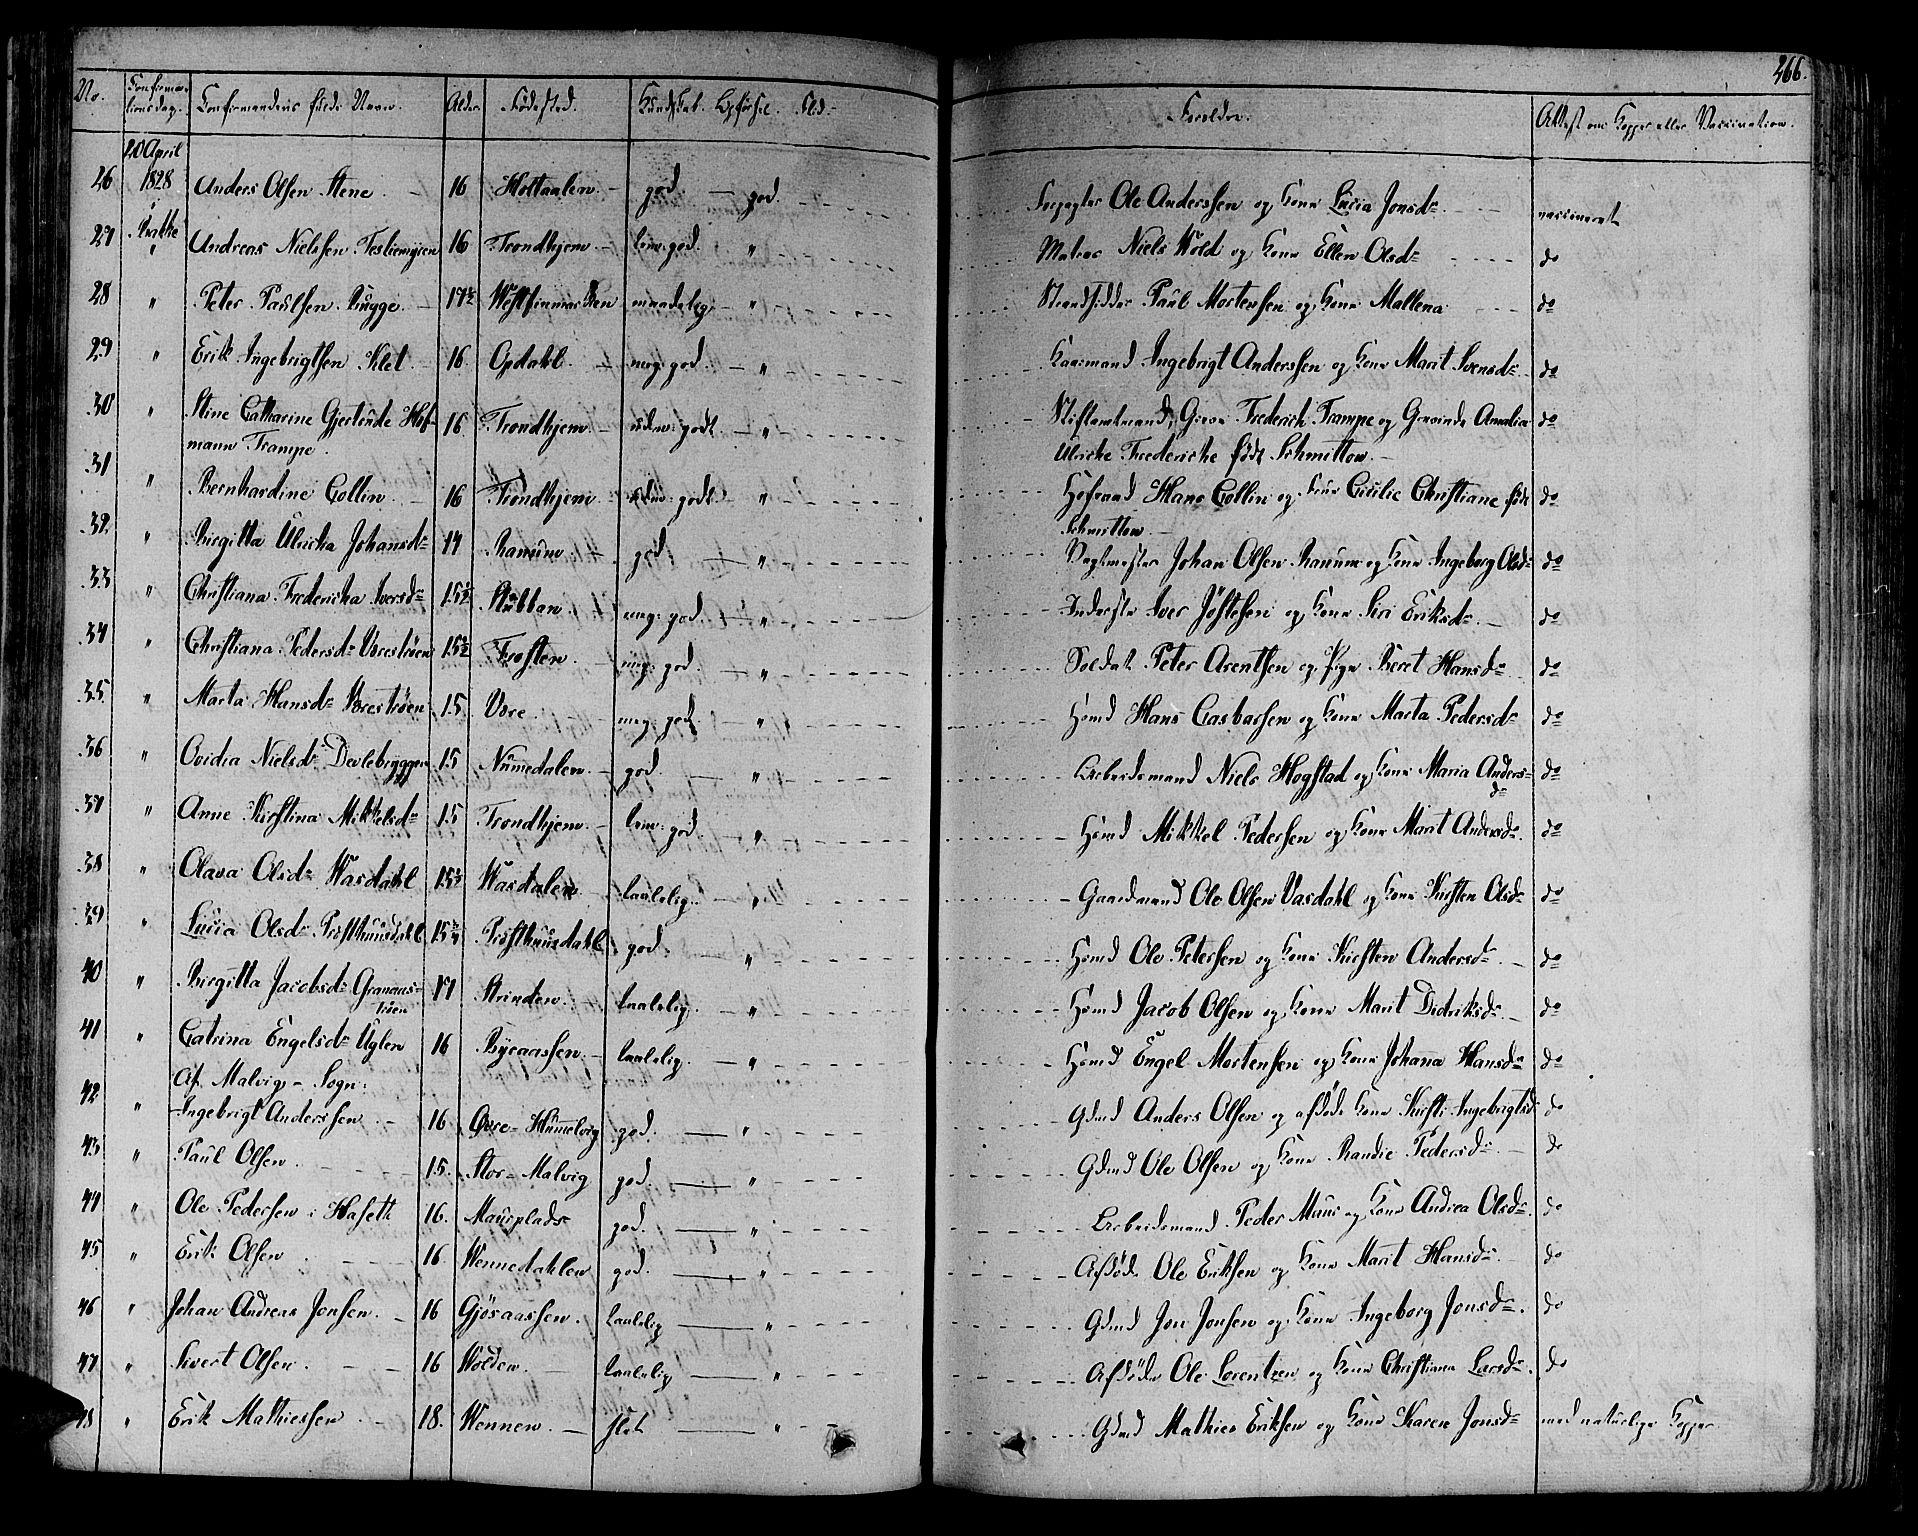 266.
No. Confirma- Confirmandens fulde Navn. Alder Födested. Kundskab. Opförsel. Flid. Forældre. Attest om Kopper eller Vaccination.
tionsdag.
20 April
26 1828 Anders Olsen Stene 16 Holtaalen god god Ole Anderssen og Kone Lucia Jonsd. vaccineret
27 Andreas Nielssen Tesliemyren 16 Trondhjem tem: god " Matros Niels Wold og Kone Ellen Olsd. do
28 " Peter Paulsen Bugge 17½ Westfinmarken maadelig " Strandsidder Paul Mortensen og Kone Mallena do
29 " Erik Ingebrigtsen Klet 16 Opdahl meg: god " Huusmand Ingebrigt Anderssen og Kone Marit Svensd. do
30 " Stine Catharine Gjertrude Hof- 16 Trondhjem udm: godt " Stiftamtmand, Greve Frederich Trampe og Grevinde Amalia do
mann Trampe. Ulricke Fredericke födt Schmittow.
31 " Bernhardine Collin 16 Trondhjem udm: godt " Hans Collin og Kone Cicilie Christiane född do
Schmittow
32 " Birgitta Ulricka Johansd. 17 Ranum god " Vagtmester Johan Olsen Ranum og Kone Ingeborg Olsd. do
33 " Christiana Fredericka Iversd. 15½ Stubban meg: god " Inderste Iver Jöstesen og Kone Siri Eriksd. do
34 " Christiana Pedersd. Voreströen 15½ Frosten meg: god " Soldat Peter Arentsen og Pige Beret Hansd. do
35 " Marta Hansd. Voreströen 15 Vore meg: god " Hsmd Hans Casbarsen og Kone Marta Pedersd. do
36 " Ovidia Nielsd. Devlebryggen 15 Numedalen god " Arbeidsmand Niels Hogstad og Kone Maria Anders- do
d.
37 " Anne Kirstina Mikkelsd. 15 Trondhjem tem: god " Hsmd Mikkel Pedersen og Kone Marit Andersd. do
38 " Olava Olsd. Wasdahl 15½ Wasdalen taalelig " Gaardmand Ole Olsen Vasdahl og Kone Kirsten Olsd. do
39 " Lucia Olsd. Præsthuusdahl 15¾ Præsthuusdahl god " Hsmd Ole Petersen og Kone Kirsten Andersd. do
40 " Birgitta Jacobsd. Granaas- 17 Strinden taalelig " Hsmd Jacob Olsen og Kone Marit Didriksd. do
tröen
41 " Catrina Engelsd. Uglen 16 Byeaassen taalelig " Hsmd Engel Mortensen og Kone Johana Hansd. do
Af Malvig-Sogn:
42 " Ingebrigt Anderssen 16 Övre-Hummelvig god " Gdmd Anders Olsen og afdöde Kone Kirsti Ingebrigtsd. do
43 " Paul Olsen 15. Stor-Malvig god " Gdmd Ole Olsen og Kone Randie Pedersd. do
44 " Ole Pedersen i Hafett 16. Muurplads god " Arbeidsmand Peder Muur og Kone Andrea Olsd. do
45 " Erik Olsen 16 Wennedahlen god " Afdöde Ole Eriksen og Kone Marit Hansd. do
46 " Johan Andreas Jonsen 16 Gjösaassen taalelig " Gdmd Jon Jonsen og Kone Ingeborg Jonsd. do
47 " Sivert Olsen 16 Wolden taalelig " Afdöde Ole Lorentzen og Kone Christiana Larsd. do
48 " Erik Mathiessen 18. Wennen slet " Gdmd Mathies Eriksen og Kone Karen Jonsd. med naturlige Kopper